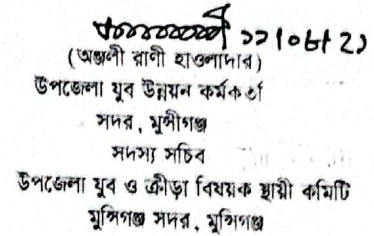 ১১।০৮।২১
(অঞ্জলী রাণী হাওলাদার)
উপজেলা যুব উন্নয়ন কর্মকর্তা
সদর, মুন্সীগঞ্জ
সদস্য সচিব
উপজেলা যুব ও ক্রীড়া বিষয়ক স্থায়ী কমিটি
মুন্সিগঞ্জ সদর, মুন্সিগঞ্জ